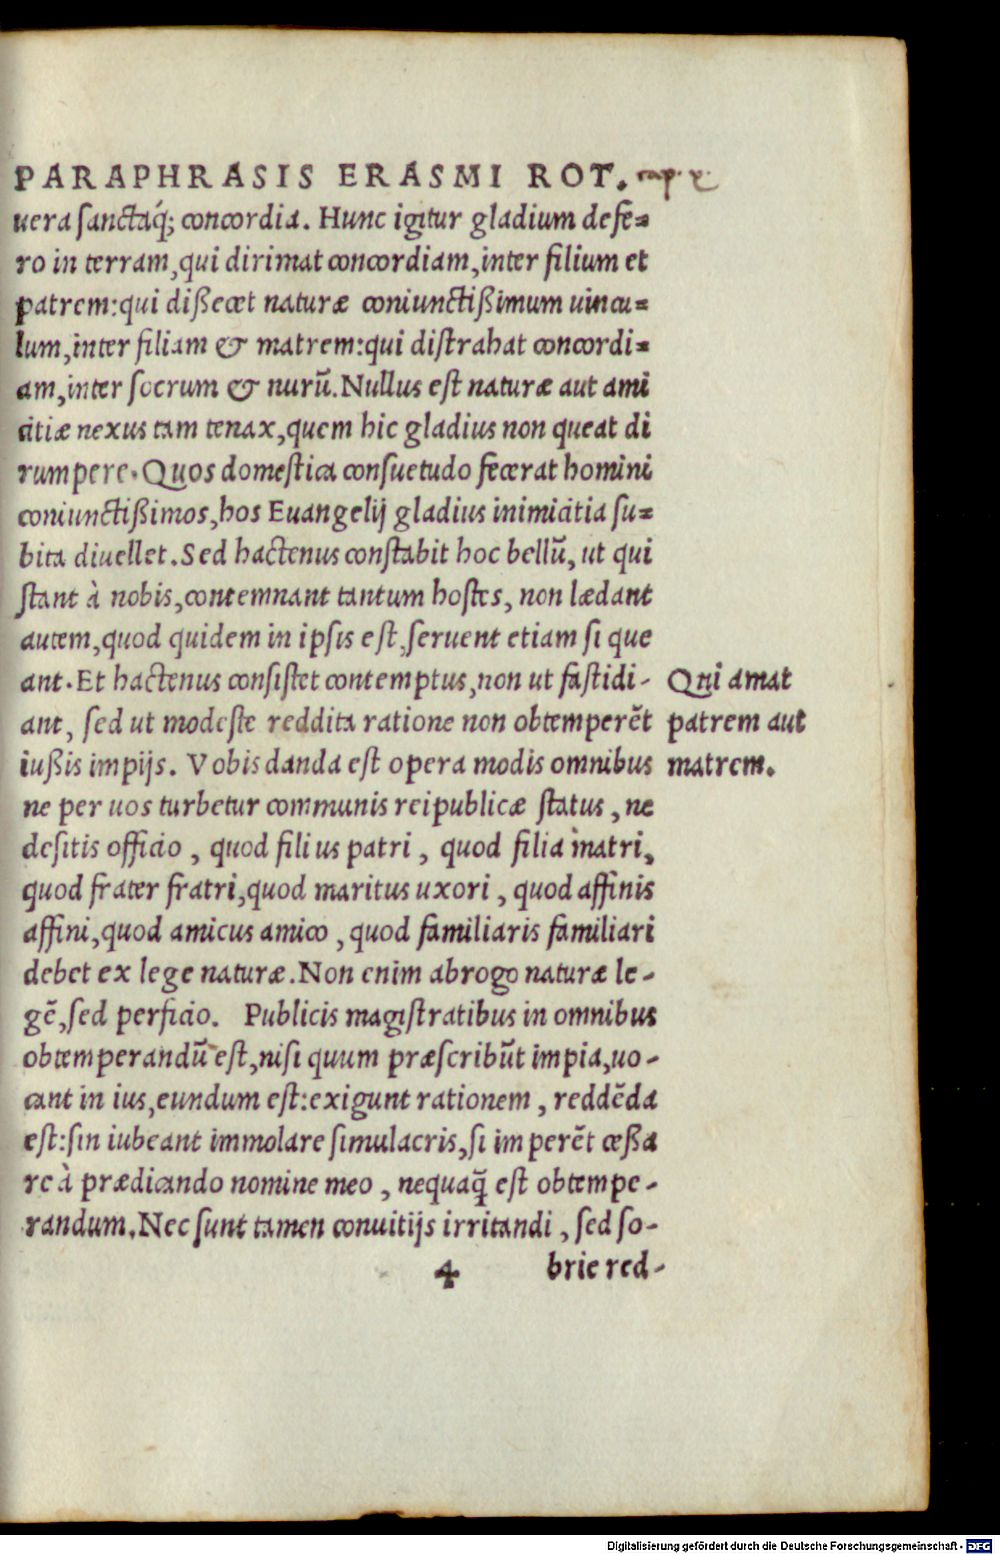 PARAPHRASIS ERASMI ROT. cap. x.
uera ſanctaq́; concordia. Hunc igitur gladium defe⸗
ro in terram, qui dirimat concordiam, inter filium et
patrem: qui diſſecet naturæ coniunctiſſimum uincu⸗
lum, inter filiam & matrem: qui diſtrahat concordi⸗
am, inter ſocrum & nurũ. Nullus eſt naturæ aut ami
citiæ nexus tam tenax, quem hic gladius non queat di
rumpere. Quos domeſtica conſuetudo fecerat homini
coniunctiſſimos, hos Euangelij gladius inimicitia ſu⸗
bita diuellet. Sed hactenus conſtabit hoc bellũ, ut qui
ſtant à nobis, contemnant tantum hoſtes, non lædant
autem, quod quidem in ipſis eſt, ſeruent etiam ſi que
ant. Et hactenus conſiſtet contemptus, non ut faſtidi-
ant, ſed ut modeſte reddita ratione non obtemperẽt
iuſſis impijs. Vobis danda eſt opera modis omnibus
ne per uos turbetur communis reipublicæ ſtatus, ne
deſitis officio, quod filius patri, quod filia matri,
quod frater fratri, quod maritus uxori, quod affinis
affini, quod amicus amico, quod familiaris familiari
debet ex lege naturæ. Non enim abrogo naturæ le-
gẽ, ſed perficio. Publicis magiſtratibus in omnibus
obtemperandũ eſt, niſi quum præſcribũt impia, uo-
cant in ius, eundum eſt: exigunt rationem, reddẽda
eſt: ſin iubeant immolare ſimulacris, ſi imperẽt ceſſa
re à prædicando nomine meo, nequaq̃ eſt obtempe-
randum. Nec ſunt tamen conuitijs irritandi, ſed ſo-
4 brie red-
Qui amat
patrem aut
matrem.
Digitalisierung gefördert durch die Deutsche Forschungsgemeinschaft - DFG